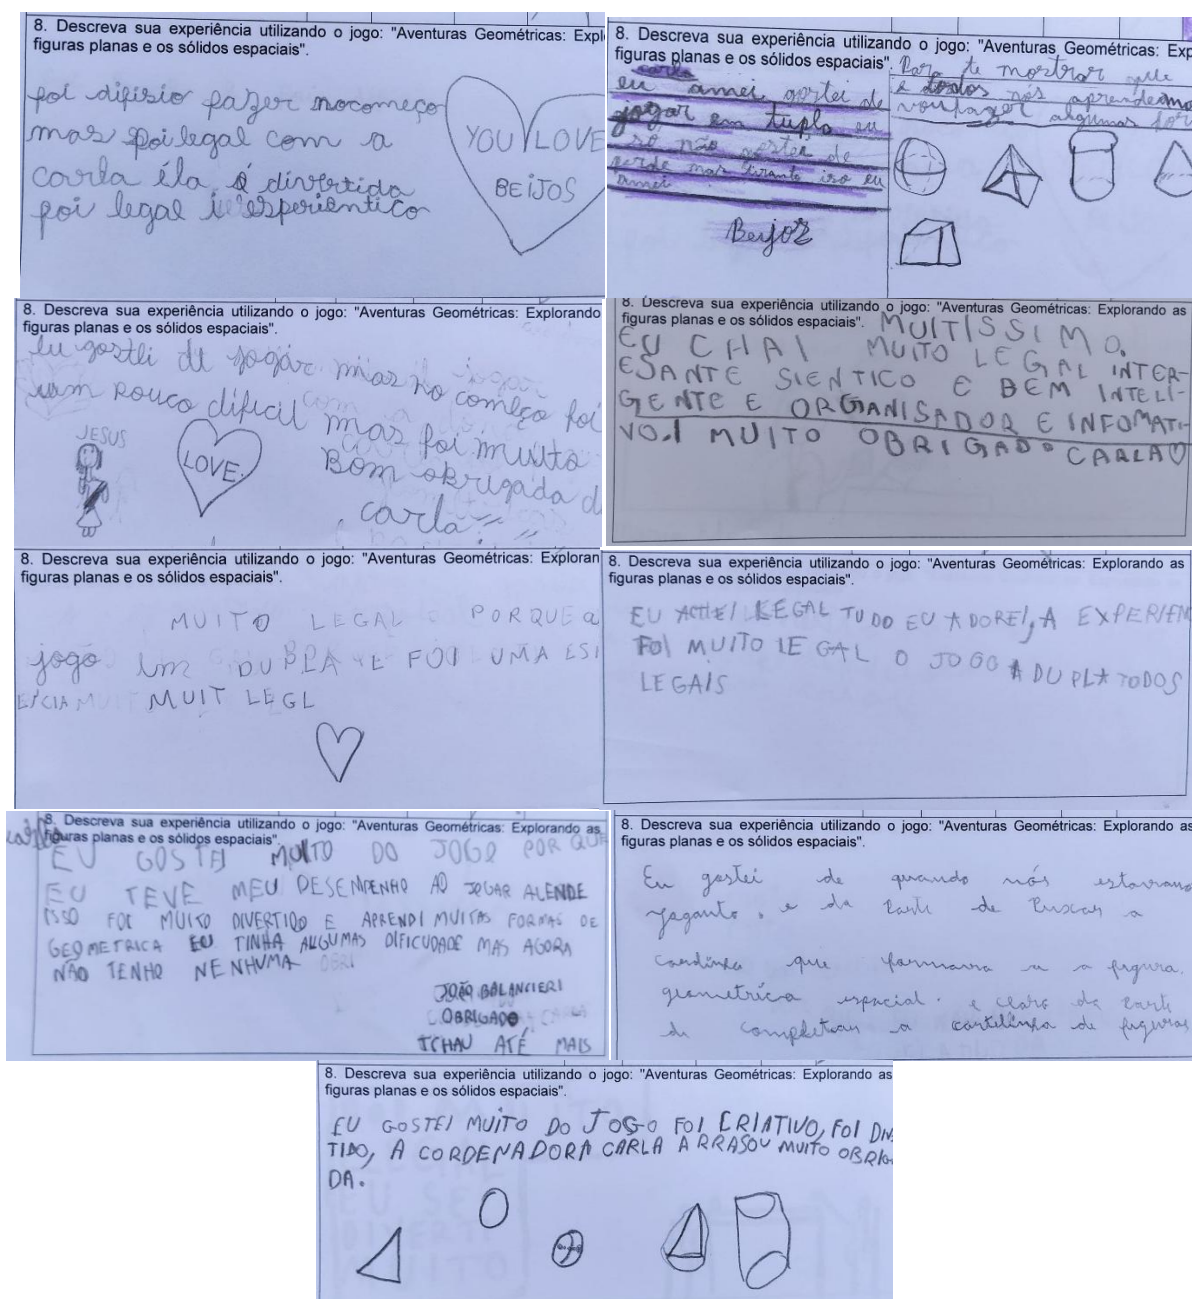 8. Descreva sua experiência utilizando o jogo: "Aventuras Geométricas: Expl
figuras planas e os sólidos espaciais".
foi difisio fazer nocomeço
mas foi legal com a
carla éla é divertida
foi legal i esperiêntico
YOU LOVE
BEIJOS
8. Descreva sua experiência utilizando o jogo: "Aventuras Geométricas: Exp
figuras planas e os sólidos espaciais".
carla
eu amei gostei de
jogar em tupla eu
só não gostei de
perde mas tirante iso eu
amei
Beijos
Para te mostrar que
e todos nós aprendemo
vou fazer algumas for
8. Descreva sua experiência utilizando o jogo: "Aventuras Geométricas: Explorando
figuras planas e os sólidos espaciais".
eu gostei de jogar mias no comêço foi
um pouco dificil mas foi muito
Bom obrigada
carla
JESUS
LOVE.
8. Descreva sua experiência utilizando o jogo: "Aventuras Geométricas: Explorando as
figuras planas e os sólidos espaciais".
MUITISSIMO.
EU CHAI MUITO LEGAL INTER-
ESANTE SIENTICO E BEM INTELI-
GENTE E ORGANISADOR E INFOMATI-
VO.! MUITO OBRIGADO CARLA♡
8. Descreva sua experiência utilizando o jogo: "Aventuras Geométricas: Exploran
figuras planas e os sólidos espaciais".
MUITO LEGAL PORQUE a
jogo um DUPLA E FOI UMA ESI
ECIA MUIT LEGL
8. Descreva sua experiência utilizando o jogo: "Aventuras Geométricas: Explorando as
figuras planas e os sólidos espaciais".
EU ACHEI LEGAL TUDO EU ADOREI, A EXPERIEN
FOI MUITO LEGAL O JOGO A DUPLA TODOS
LEGAIS
8. Descreva sua experiência utilizando o jogo: "Aventuras Geométricas: Explorando as
figuras planas e os sólidos espaciais".
EU GOSTEI MUITO DO JOGO POR QUE
EU TEVE MEU DESENPENHO AO JOGAR ALENDE
ISSO FOI MUITO DIVERTIDO E APRENDI MUITAS FORMAS DE
GEOMETRICA EU TINHA ALGUMAS DIFICUDADE MAS AGORA
NÃO TENHO NENHUMA
JOÃO BALANCIERI
OBRIGADO
TCHAU ATÉ MAIS
8. Descreva sua experiência utilizando o jogo: "Aventuras Geométricas: Explorando as
figuras planas e os sólidos espaciais".
Eu gostei de quando nós estavamo
joganto. e da parte de buscar a
cardinha que formava a a figura.
geometrica espacial. e claro da parte
de completar a cartelinha de figuras
8. Descreva sua experiência utilizando o jogo: "Aventuras Geométricas: Explorando as
figuras planas e os sólidos espaciais".
EU GOSTEI MUITO DO JOGO FOI CRIATIVO, FOI DIV
TIDO, A CORDENADORA CARLA ARRASOU MUITO OBRIG
DA.